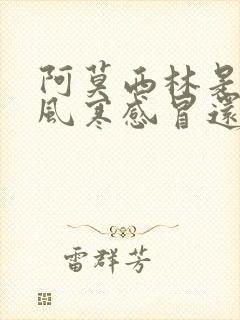 阿莫西林是
風寒感冒還
雷群芳